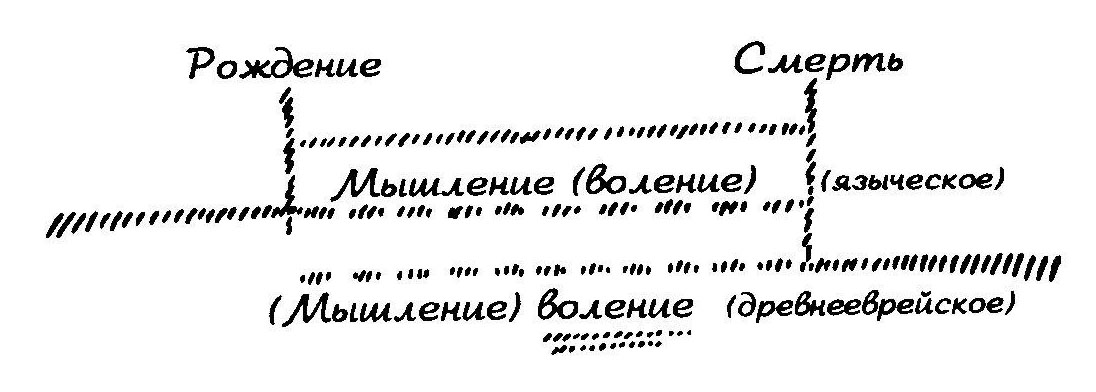 Рождение Смерть
Мышление (воление) (языческое)
(Мышление) воление (древнееврейское)